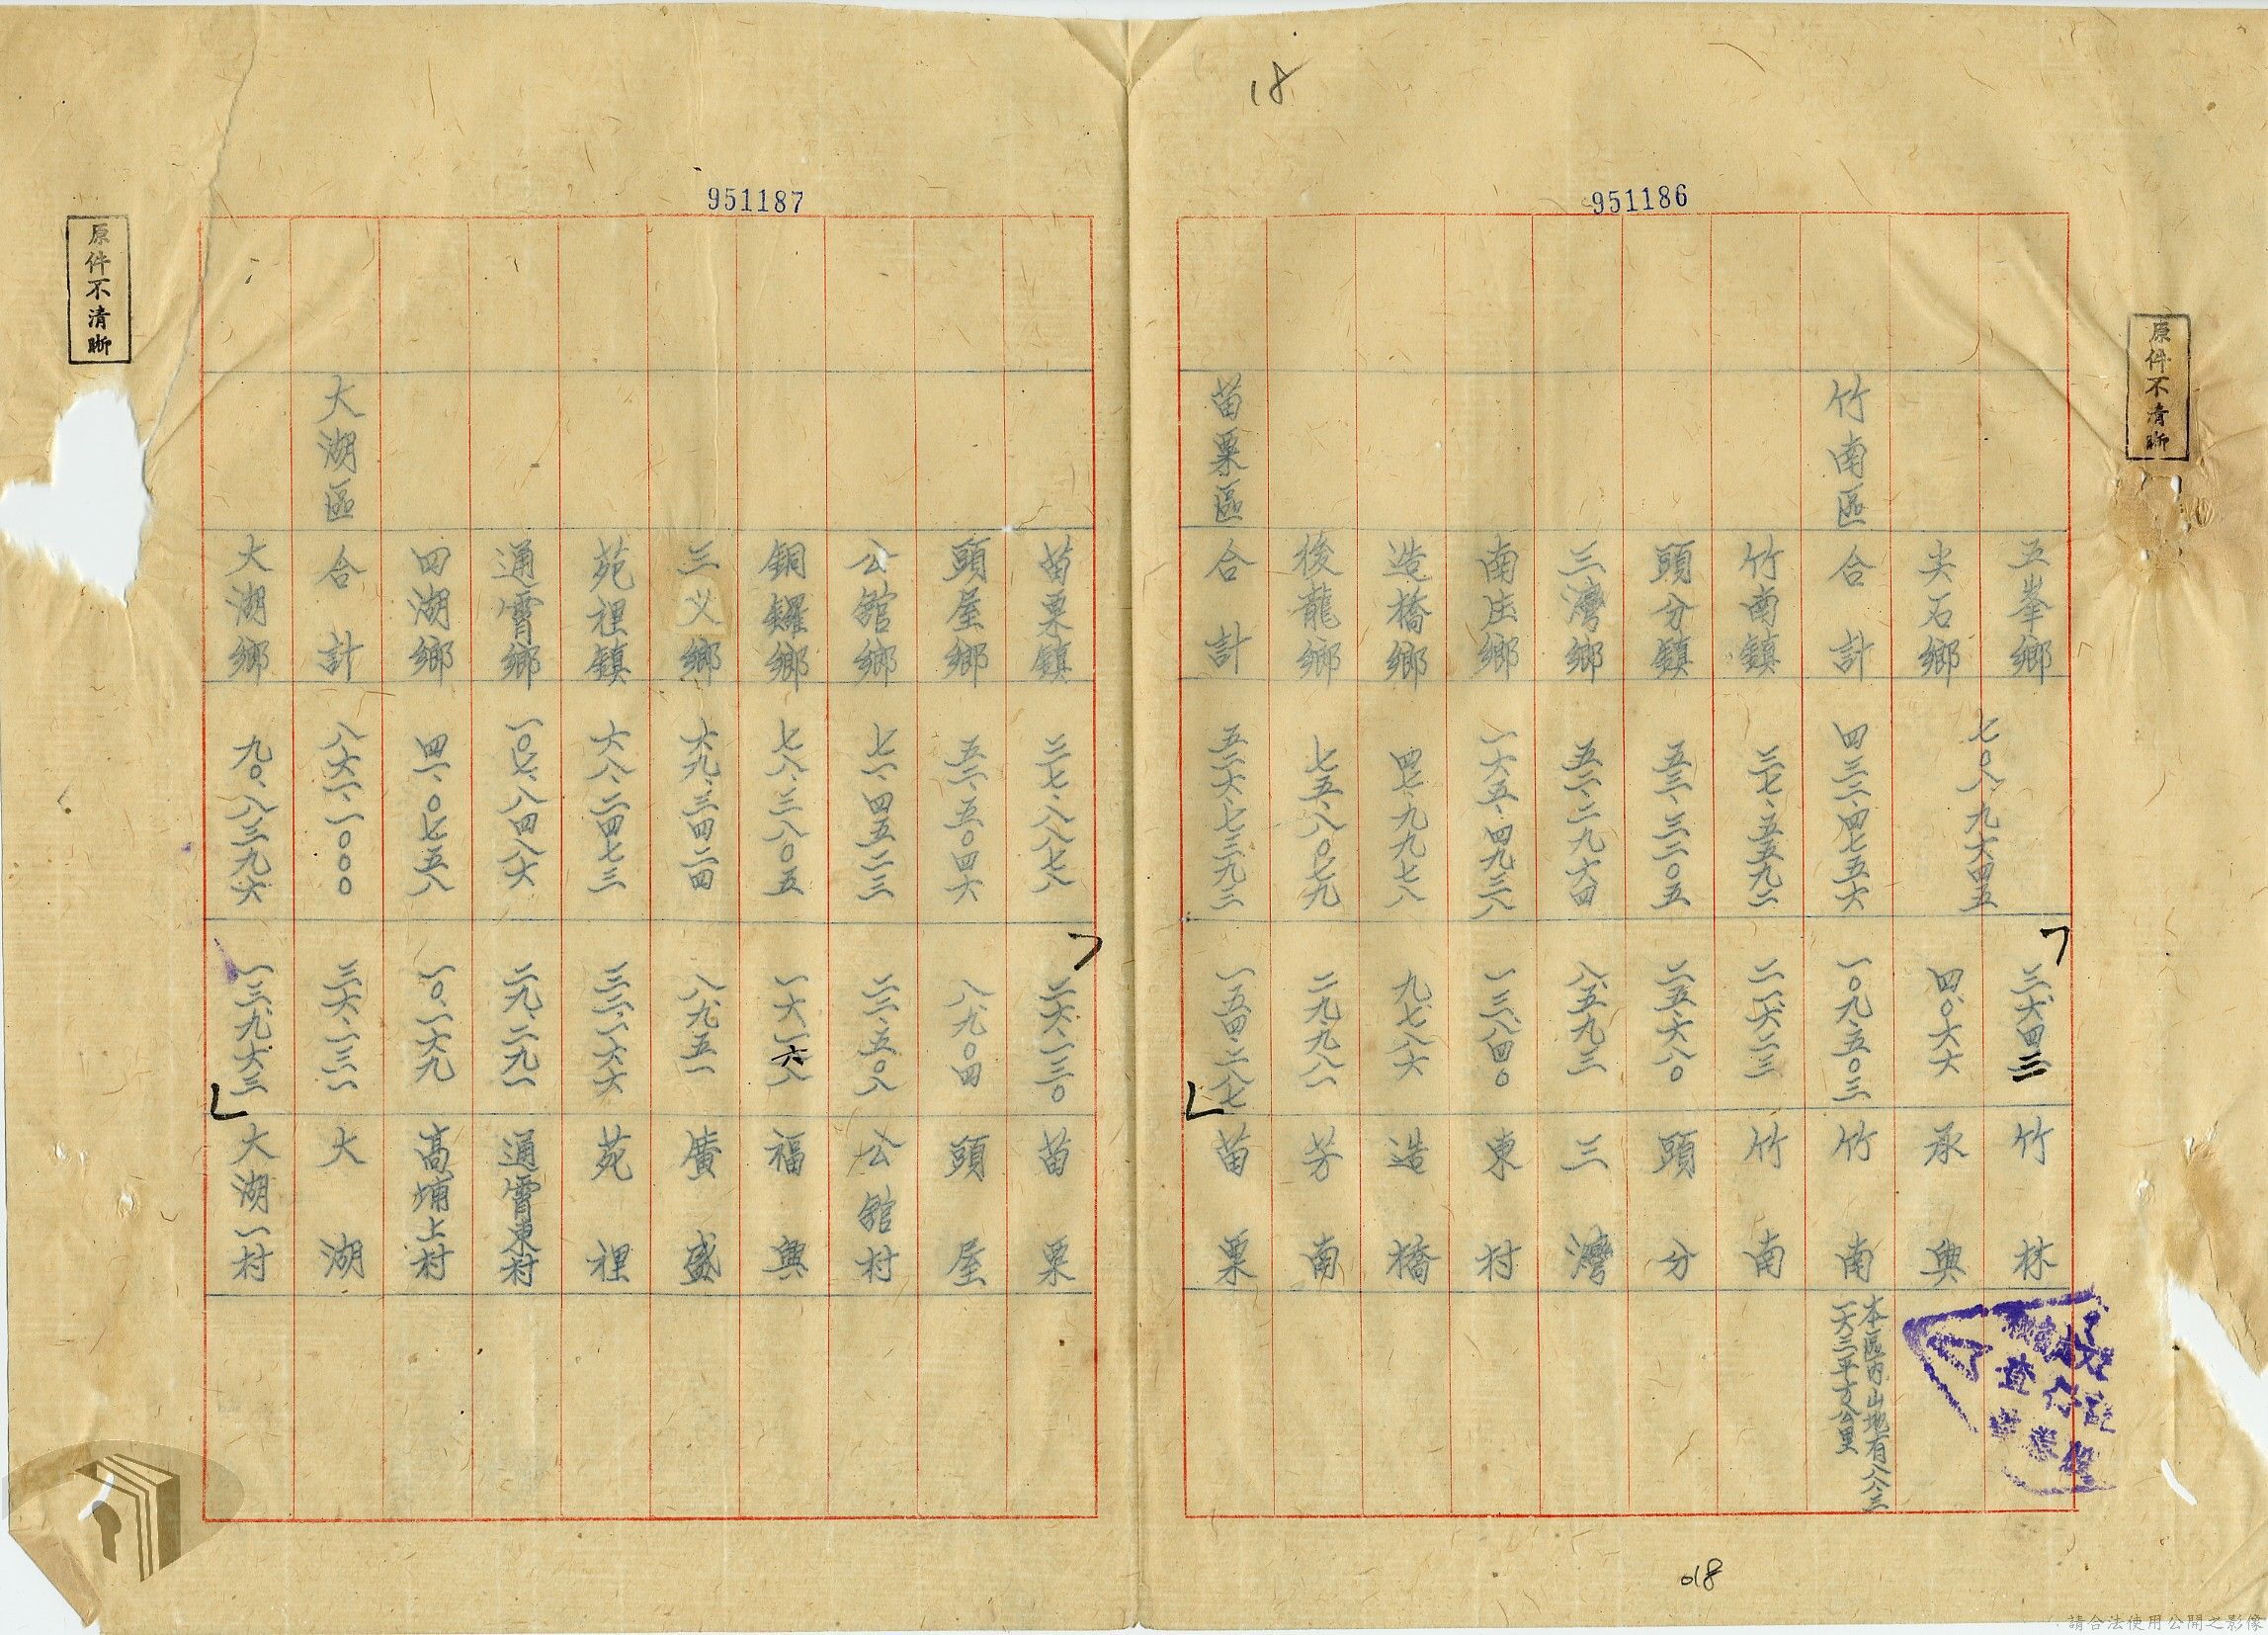 18
951186
原件不清晰
五峯鄉 七〇八、九六四五 三、六四三 竹林
尖石鄉 四、〇六六 承興
竹南區 合計 四三三、四七五六 一〇九、五〇三 竹南 本區內山地有八八、三一六三平方公里
竹南鎮 三七、五五九二 二一、六二三 竹南
頭分鎮 五三、三二〇五 二五、六八〇 頭分
三灣鄉 五二、二九六四 八、五九三 三灣
南庄鄉 一六五、四九三八 一三、八四〇 東村
造橋鄉 四七、九九七八 九、七八六 造橋
後龍鄉 七五、八〇七九 二九、九八一 芳南
苗栗區 合計 五二六、七三九三 一五四、二八七 苗栗
018
951187
原件不清晰
苗栗鎮 三七、八八七八 二六、一三〇 苗栗
頭屋鄉 五二、五〇四六 八、九〇四 頭屋
公館鄉 七一、四五二三 二二、五〇八 公館村
銅鑼鄉 七八、三八〇五 一六、一六八 福興
三义鄉 六九、三四二四 八、九五一 廣盛
苑裡鎮 六八、二四七三 三二、一六六 苑裡
通霄鄉 一〇七、八四八六 二九、二九一 通霄東村
四湖鄉 四一、〇七五八 一〇、一六九 高埔上村
大湖區 合計 八六一、一〇〇〇 三六、一三一 大湖
大湖鄉 九〇、八三九六 一三、九六三 大湖一村
請合法使用公開之影像